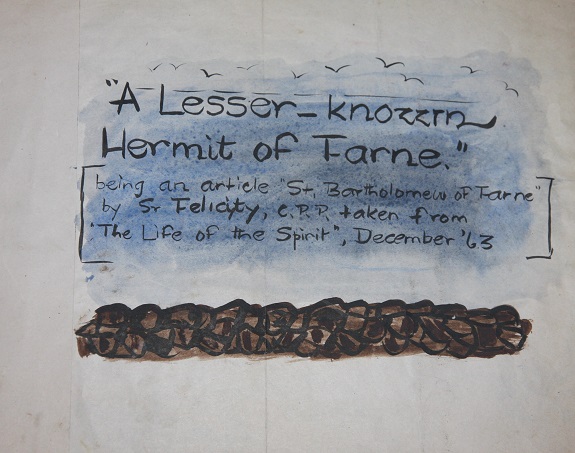 "A Lesser-known
Hermit of Farne."
[being an article "St. Bartholomew of Farne"
by Sr Felicity, C.P.P. taken from
"The Life of the Spirit", December '63]